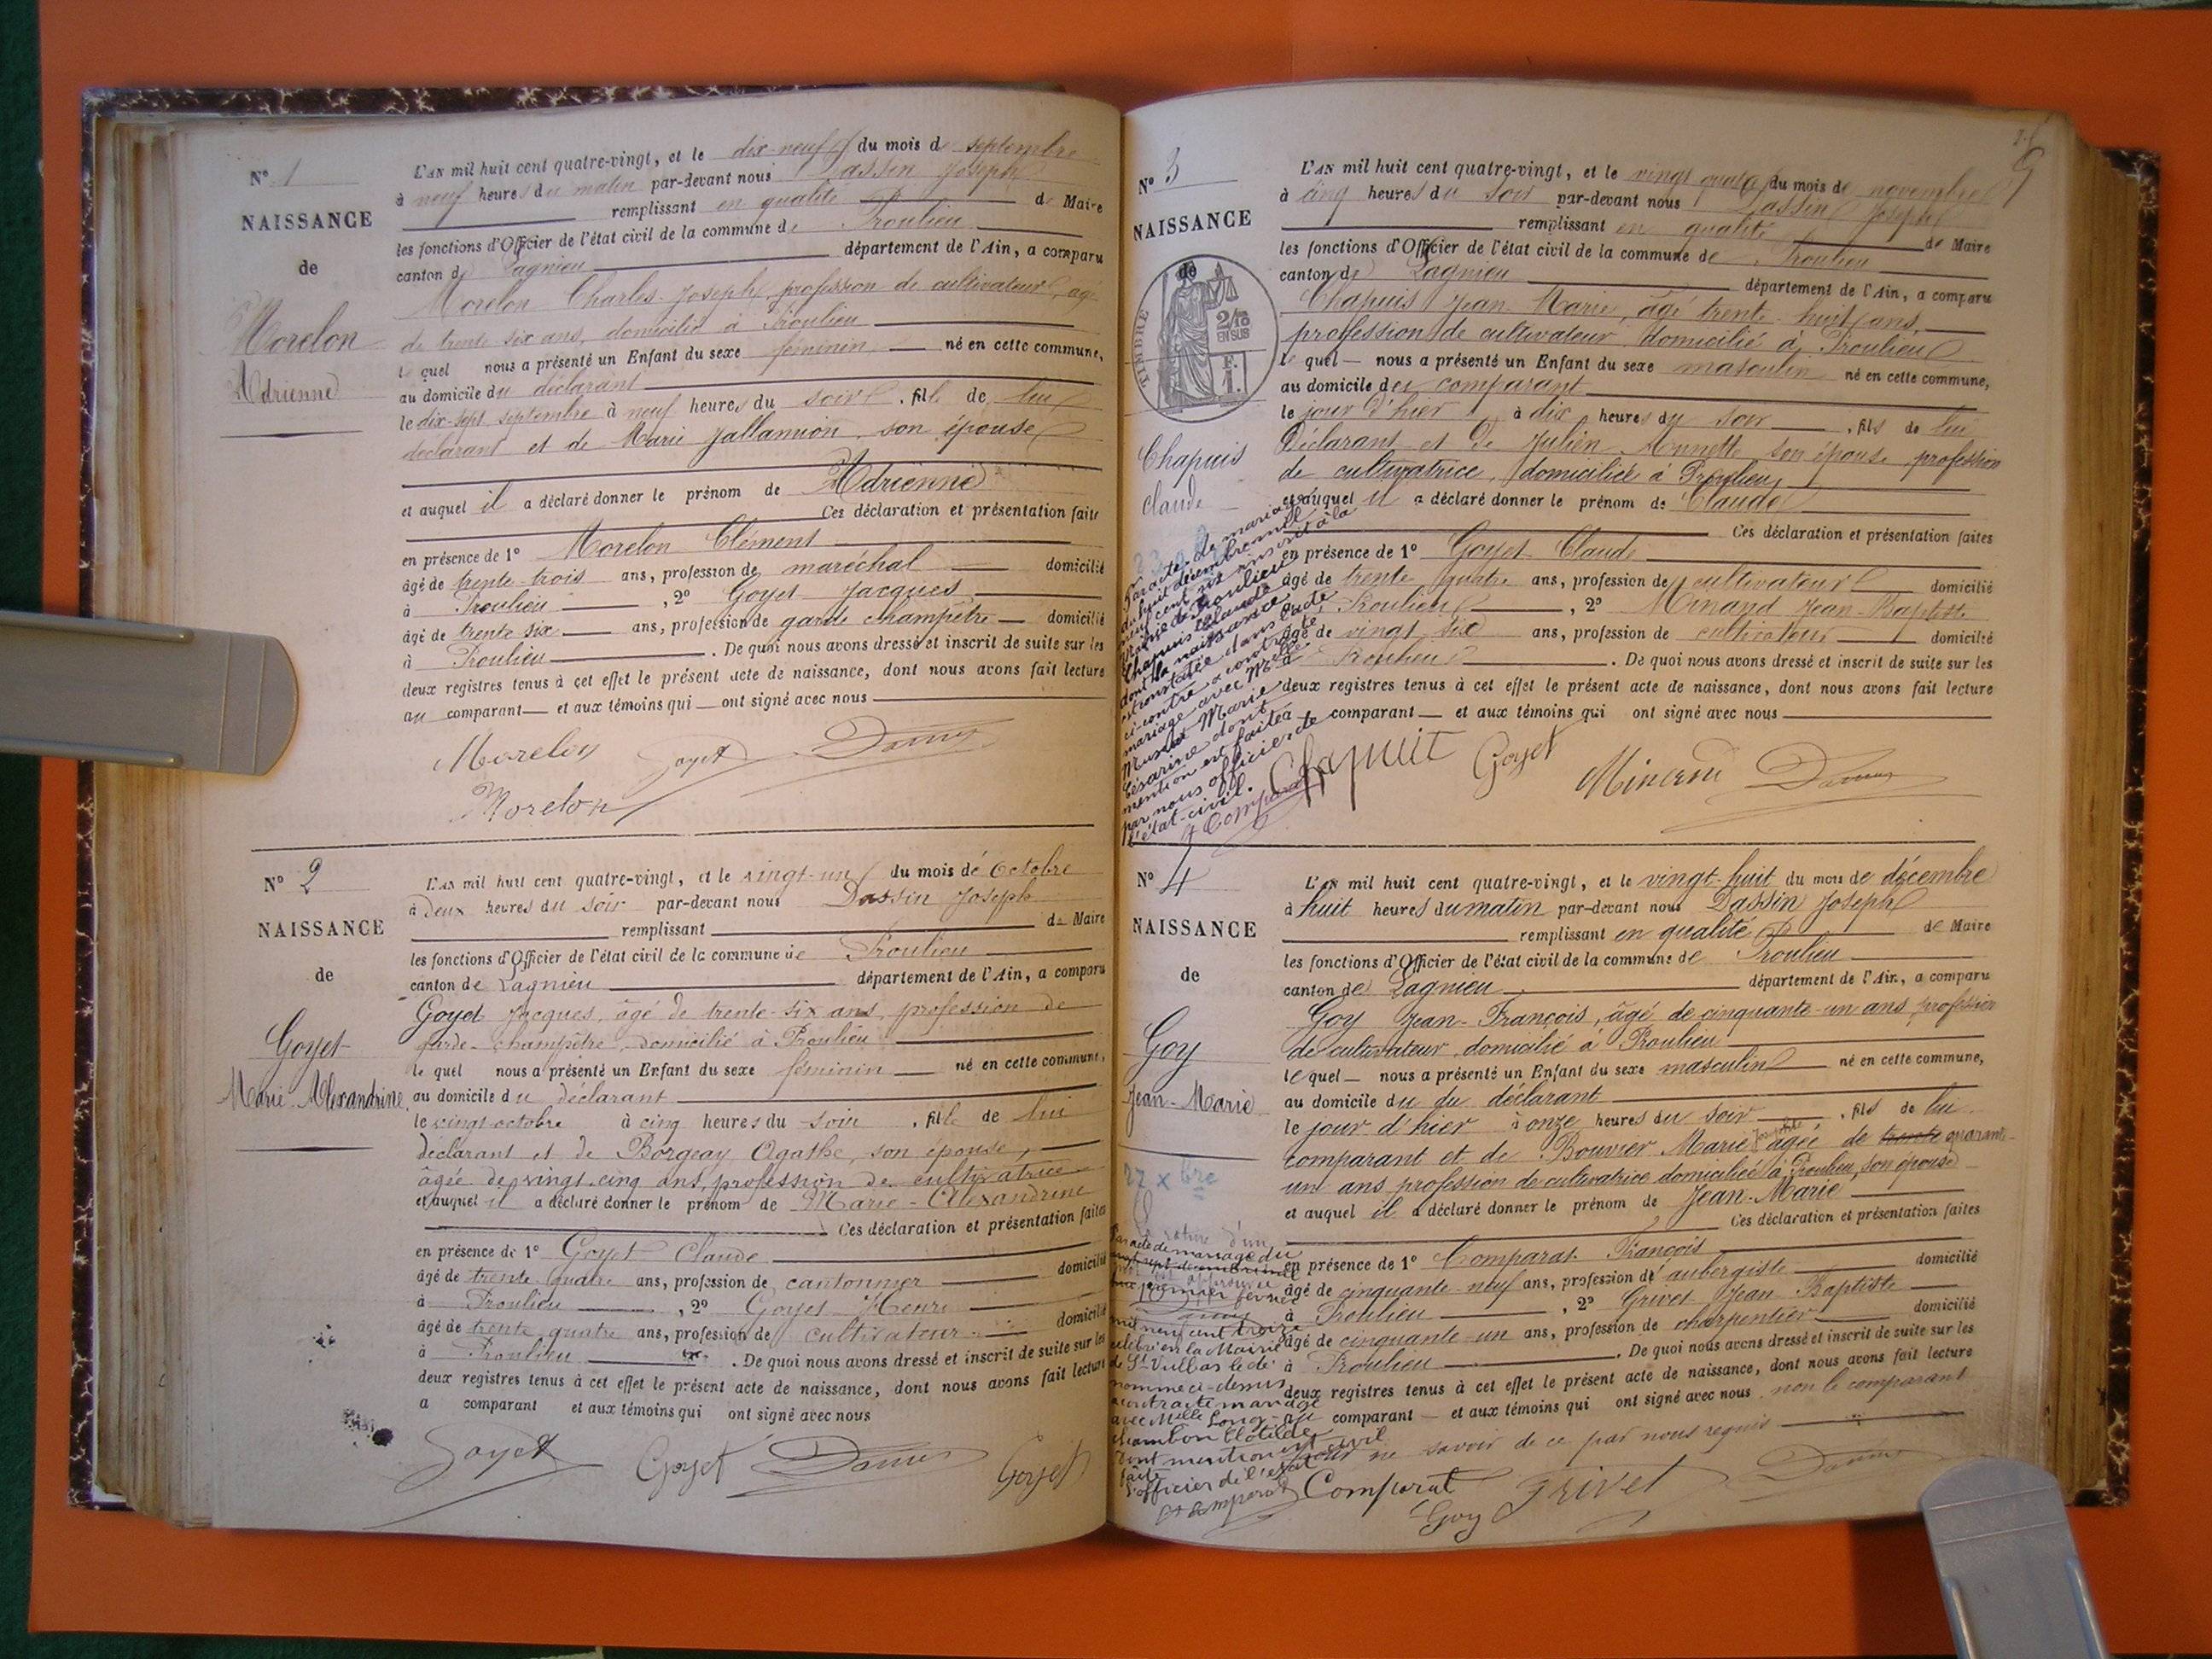 N° 1
NAISSANCE
de
Morelon
Adrienne
L'AN mil huit cent quatre-vingt, et le dix-neuf du mois de septembre
à neuf heures du matin par-devant nous Dassin Joseph
remplissant en qualité de Maire
les fonctions d'Officier de l'état civil de la commune de Proulieu
canton de Lagnieu département de l'Ain, a comparu
Morelon Charles Joseph, profession de cultivateur, agé
de trente six ans, domicilié à Proulieu
le quel nous a présenté un Enfant du sexe féminin né en cette commune,
au domicile du déclarant
le dix-sept septembre à neuf heures du soir, fille de lui
déclarant et de Marie Jallamion, son épouse
et auquel il a déclaré donner le prénom de Adrienne
Ces déclaration et présentation faites
en présence de 1° Morelon Clément
âgé de trente-trois ans, profession de maréchal domicilié
à Proulieu, 2° Goyet Jacques
âgé de trente six ans, profession de garde champêtre domicilié
à Proulieu. De quoi nous avons dressé et inscrit de suite sur les
deux registres tenus à cet effet le présent acte de naissance, dont nous avons fait lecture
au comparant et aux témoins qui ont signé avec nous
Morelon Goyet Dassin
Morelon
N° 2
NAISSANCE
de
Goyet
Marie Alexandrine
L'AN mil huit cent quatre-vingt, et le vingt-un du mois de octobre
à deux heures du soir par-devant nous Dassin Joseph
remplissant de Maire
les fonctions d'Officier de l'état civil de la commune de Proulieu
canton de Lagnieu département de l'Ain, a comparu
Goyet Jacques, âgé de trente-six ans, profession de
garde-champêtre, domicilié à Proulieu
le quel nous a présenté un Enfant du sexe féminin né en cette commune,
au domicile du déclarant
le vingt octobre à cinq heures du soir, fille de lui
déclarant et de Borgeay Agathe, son épouse,
âgée de vingt-cinq ans, profession de cultivatrice
et auquel il a déclaré donner le prénom de Marie-Alexandrine
Ces déclaration et présentation faites
en présence de 1° Goyet Claude
âgé de trente quatre ans, profession de cantonnier domicilié
à Proulieu, 2° Goyet Henri
âgé de trente quatre ans, profession de cultivateur domicilié
à Proulieu. De quoi nous avons dressé et inscrit de suite sur les
deux registres tenus à cet effet le présent acte de naissance, dont nous avons fait lecture
a comparant et aux témoins qui ont signé avec nous
Goyet Goyet Dassin Goyet
N° 3
NAISSANCE
de
TIMBRE
2/10
EN SUS
F.
1.
Chapuis
Claude
L'AN mil huit cent quatre-vingt, et le vingt quatre du mois de novembre
à cinq heures du soir par-devant nous Dassin Joseph
remplissant en qualité de Maire
les fonctions d'Officier de l'état civil de la commune de Proulieu
canton de Lagnieu département de l'Ain, a comparu
Chapuis Jean Marie, âgé trente-huit ans,
profession de cultivateur, domicilié à Proulieu
le quel nous a présenté un Enfant du sexe masculin né en cette commune,
au domicile du comparant
le jour d'hier à dix heures du soir, fils de lui
Déclarant et de Julien Annette son épouse profession
de cultivatrice, domiciliée à Proulieu,
et auquel il a déclaré donner le prénom de Claude
Ces déclaration et présentation faites
en présence de 1° Goyet Claude
âgé de trente quatre ans, profession de cultivateur domicilié
à Proulieu, 2° Minand Jean-Baptiste
âgé de vingt six ans, profession de cultivateur domicilié
à Proulieu. De quoi nous avons dressé et inscrit de suite sur les
deux registres tenus à cet effet le présent acte de naissance, dont nous avons fait lecture
comparant et aux témoins qui ont signé avec nous
Par acte de mariage
du huit décembre mil
neuf cent six inscrit à la
Mairie de Proulieu
Chapuis Claude
dont la naissance
est constatée dans l'acte
ci-contre a contracté
mariage avec Melle
Marie
Césarine dont
mention est faite
par nous officier de
l'état-civil.
Comparat
Chapuit Goyet Minand Dassin
N° 4
NAISSANCE
de
Goy
Jean-Marie
27 xbre
L'AN mil huit cent quatre-vingt, et le vingt-huit du mois de décembre
à huit heures du matin par-devant nous Dassin Joseph
remplissant en qualité de Maire
les fonctions d'Officier de l'état civil de la commune de Proulieu
canton de Lagnieu département de l'Ain, a comparu
Goy Jean-François, âgé de cinquante-un ans profession
de cultivateur, domicilié à Proulieu
le quel nous a présenté un Enfant du sexe masculin né en cette commune,
au domicile du du déclarant
le jour d'hier à onze heures du soir, fils de lui
comparant et de Bouvier Marie agée de trente quarante-
un ans profession de cultivatrice domiciliée à Proulieu, son épouse
et auquel il a déclaré donner le prénom de Jean-Marie
Ces déclaration et présentation faites
en présence de 1° Comparat François
âgé de cinquante-neuf ans, profession de aubergiste domicilié
à Proulieu, 2° Grivet Jean Baptiste
âgé de cinquante-un ans, profession de charpentier domicilié
à Proulieu. De quoi nous avons dressé et inscrit de suite sur les
deux registres tenus à cet effet le présent acte de naissance, dont nous avons fait lecture
au comparant et aux témoins qui ont signé avec nous non le comparant
pour ne savoir de ce par nous requis
Par acte de mariage du
premier février
mil neuf cent treize
célébré en la Mairie
de St Vulbas le dé
nommé ci-dessus
a contracté mariage
avec Melle Long
Chambon Clotilde
dont mention est
faite
L'officier de l'état civil
Comparat
Comparat Grivet Dassin
Goy